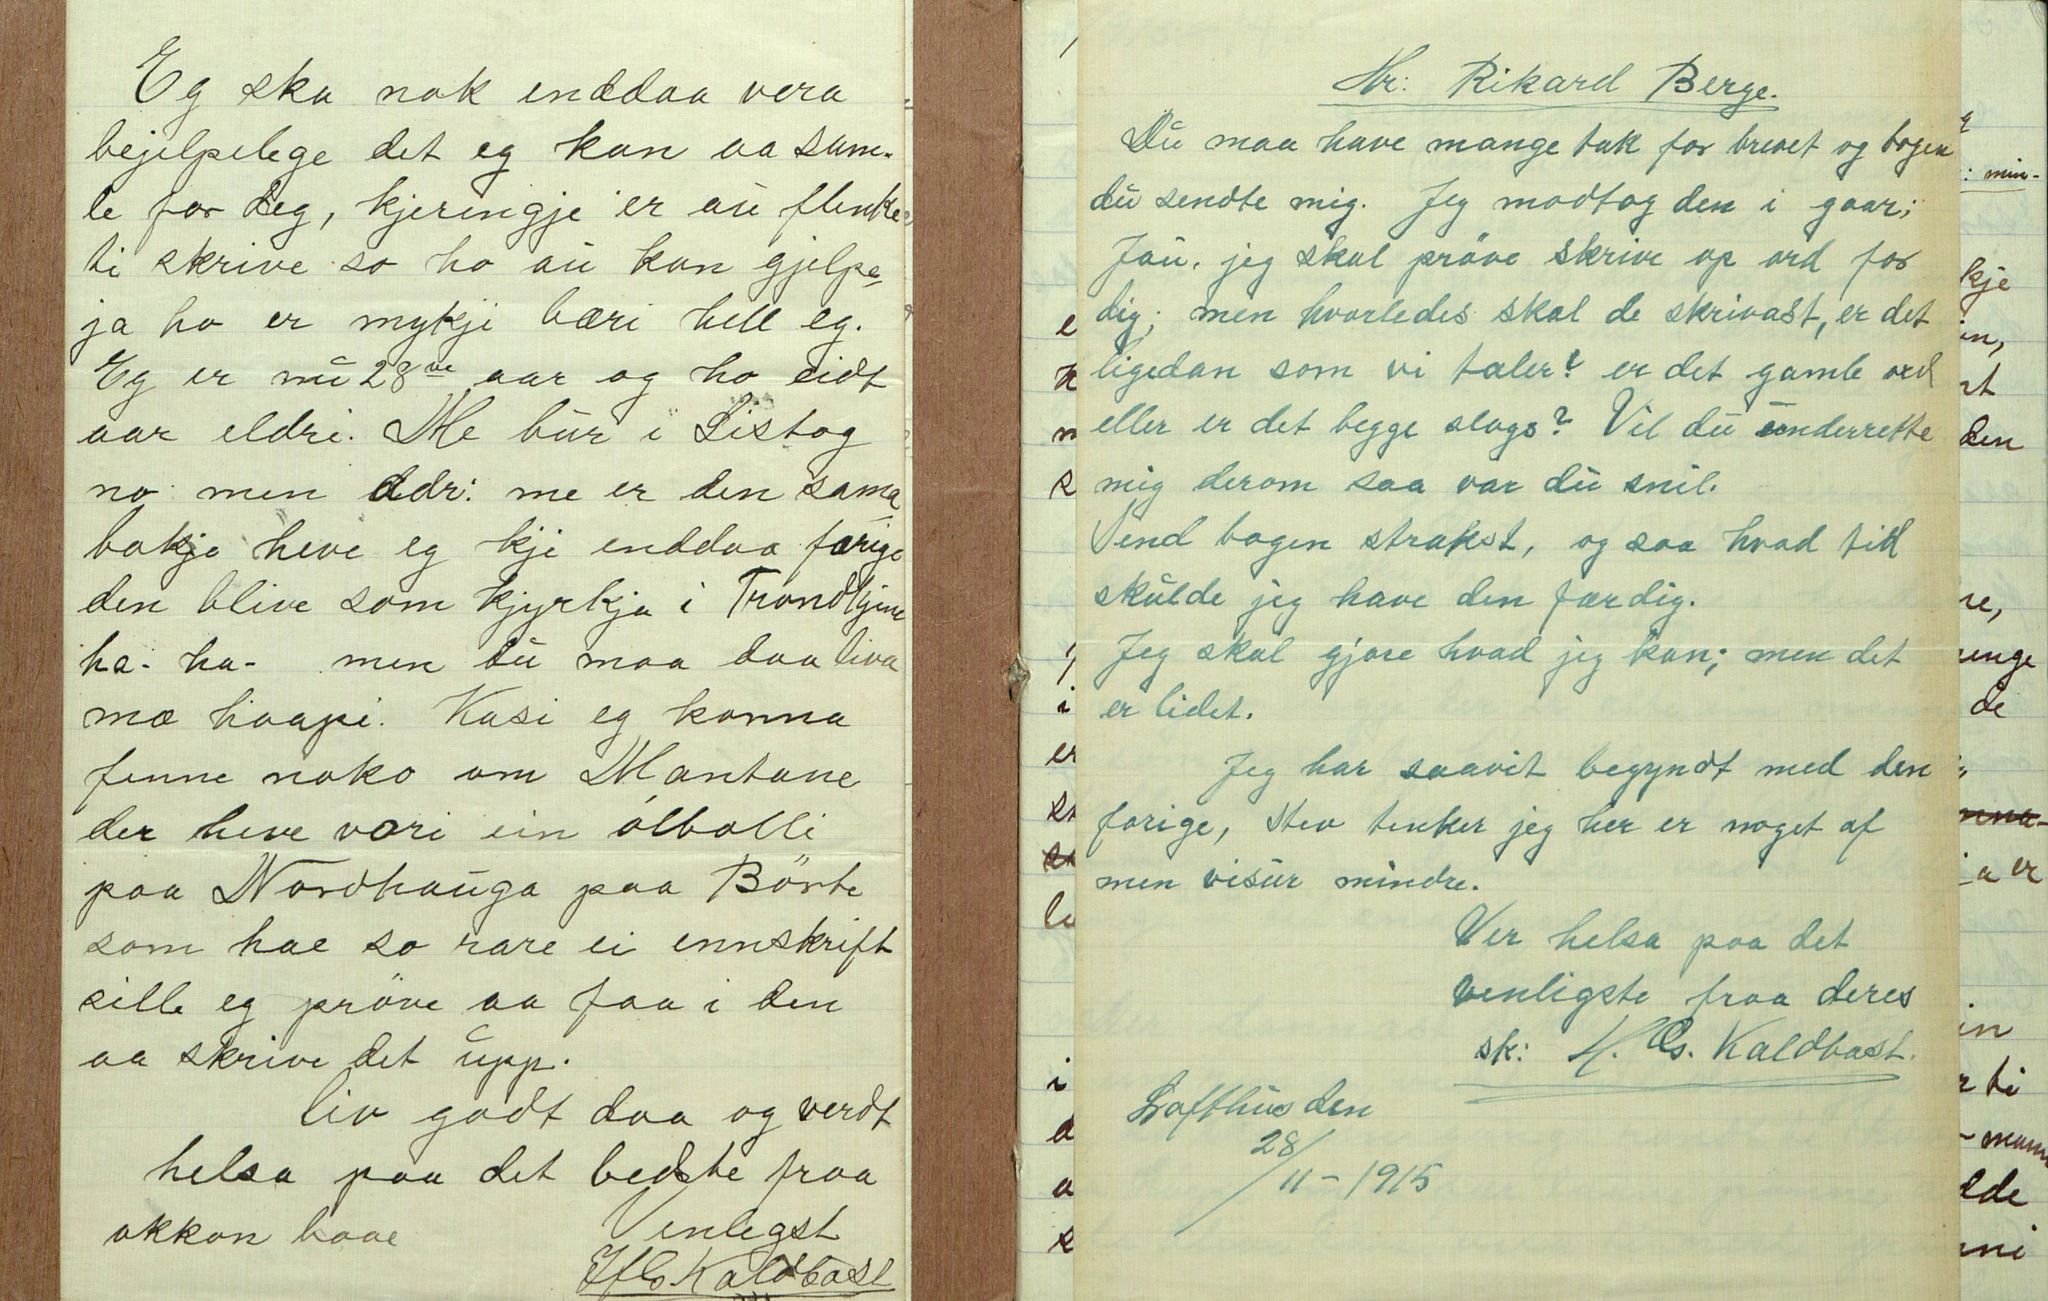 Eg ska nok enddaa vera
bejelpelege det eg kan aa sam-
le for deg, kjeringje er au flinke
ti skrive so ho au kan gjelpe
ja ho er mykji bæri hell eg.
Eg er nu 28ve aar og ho eidt
aar eldri. Me bur i Listog
no men adr: me er den sama
bokje heve eg kje enddaa færige
den blive som kjyrkja i Trondhjem
ha- ha- men du maa daa liva
mæ haapi. Kasi eg konna
finne noko om Mantane
der heve væri ein ølbolli
paa Nordhauga paa Börte
som hae so rare ei ennskrift
sille eg pröve aa faa i den
aa skrive det upp.
Liv godt daa og verdt
helsa paa det bedste fraa
okkon baae Venlegst
H. G. Kaldbast
Hr: Rikard Berge.
Du maa have mange tak for brevet og bogen
du sendte mig. Jeg modtog den i gaar;
Jau, jeg skal pröve skrive op ord for
dig; men hvorledes skal de skrivast, er det
ligedan som vi taler? er det gamle ord
eller er det begge slags? Vil du underrette
mig derom saa var du snil.
Send bogen strakst, og saa hvad tid
skulde jeg have den færdig.
Jeg skal gjøre hvad jeg kan; men det
er lidet.
Jeg har saavit begyndt med den
forige, Stev tenker jeg her er noget af
men visur mindre.
Ver helsa paa det
venligste fraa deres
sk: H. G. Kaldbast.
Lofthus den
28/11-1915